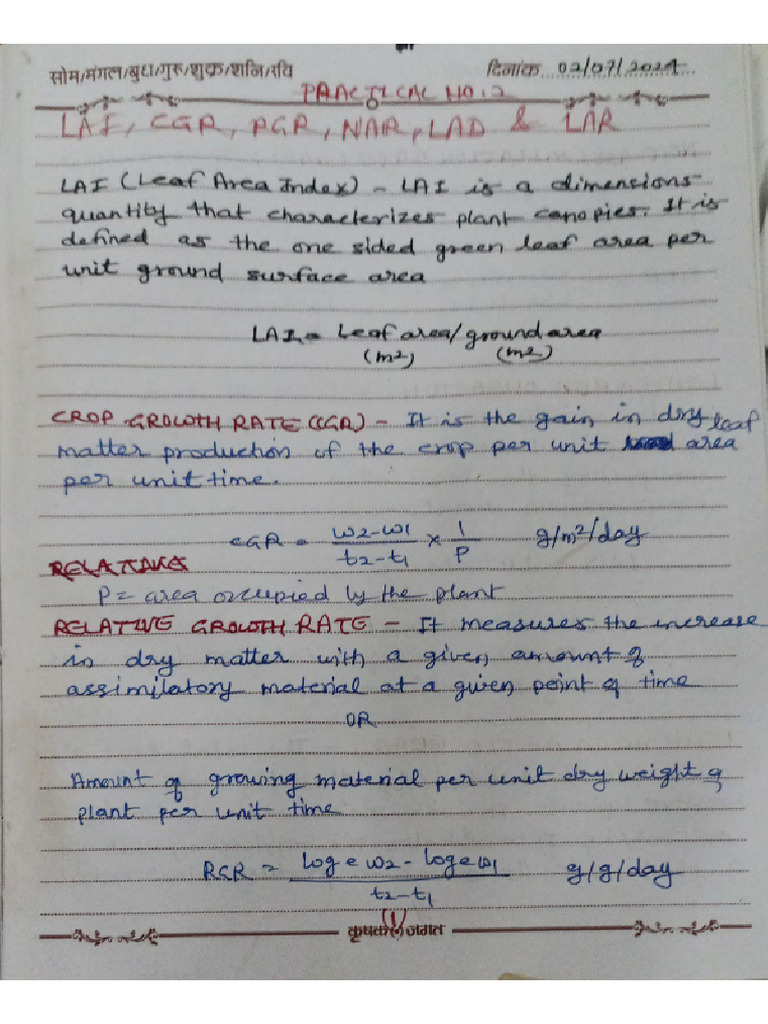 सोम/मंगल/बुध/गुरु/शुक्र/शनि/रवि दिनांक 02/07/2024
PRACTICAL NO. 2
LAI, CGR, PGR, NAR, LAD & LAR
LAI (Leaf Area Index) - LAI is a dimensions
quantity that characterizes plant canopies. It is
defined as the one sided green leaf area per
unit ground surface area
LAI = Leaf area/ground area
(m2) (m2)
CROP GROWTH RATE (CGR) - It is the gain in dry leaf
matter production of the crop per unit area
per unit time.
CGR = w2-w1/t2-t1 × 1/P g/m2/day
RELATIVE
P = area occupied by the plant
RELATIVE GROWTH RATE - It measures the increase
in dry matter with a given amount of
assimilatory material at a given point of time
OR
Amount of growing material per unit dry weight of
plant per unit time
RGR = loge w2 - loge w1/t2-t1 g/g/day
कृषक जगत